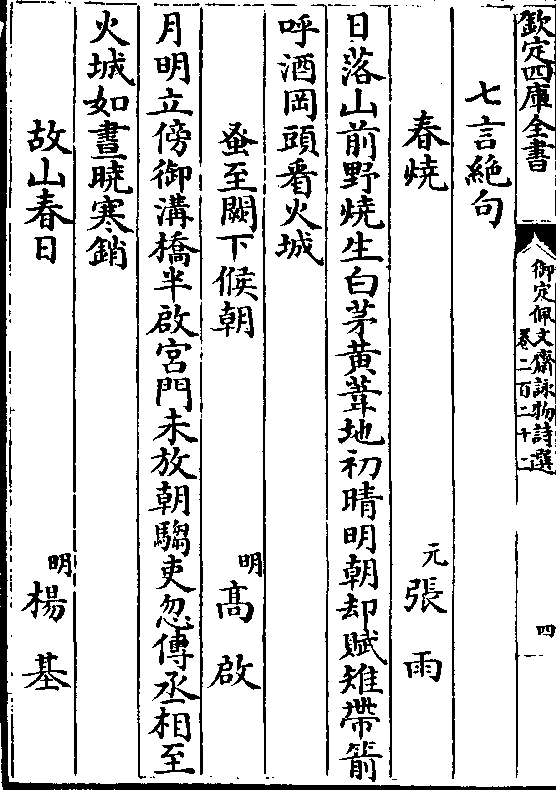 欽定四庫全書
御定佩文齋詠物詩選
卷二百二十二
四
七言絶句
春燒
元張雨
日落山前野燒生白茅黃葦地初晴明朝却賦雉帶箭
呼酒岡頭看火城
蚤至闕下候朝
明高啟
月明立傍御溝橋半啟宮門未放朝騶吏忽傳丞相至
火城如晝曉寒銷
故山春日
明楊基